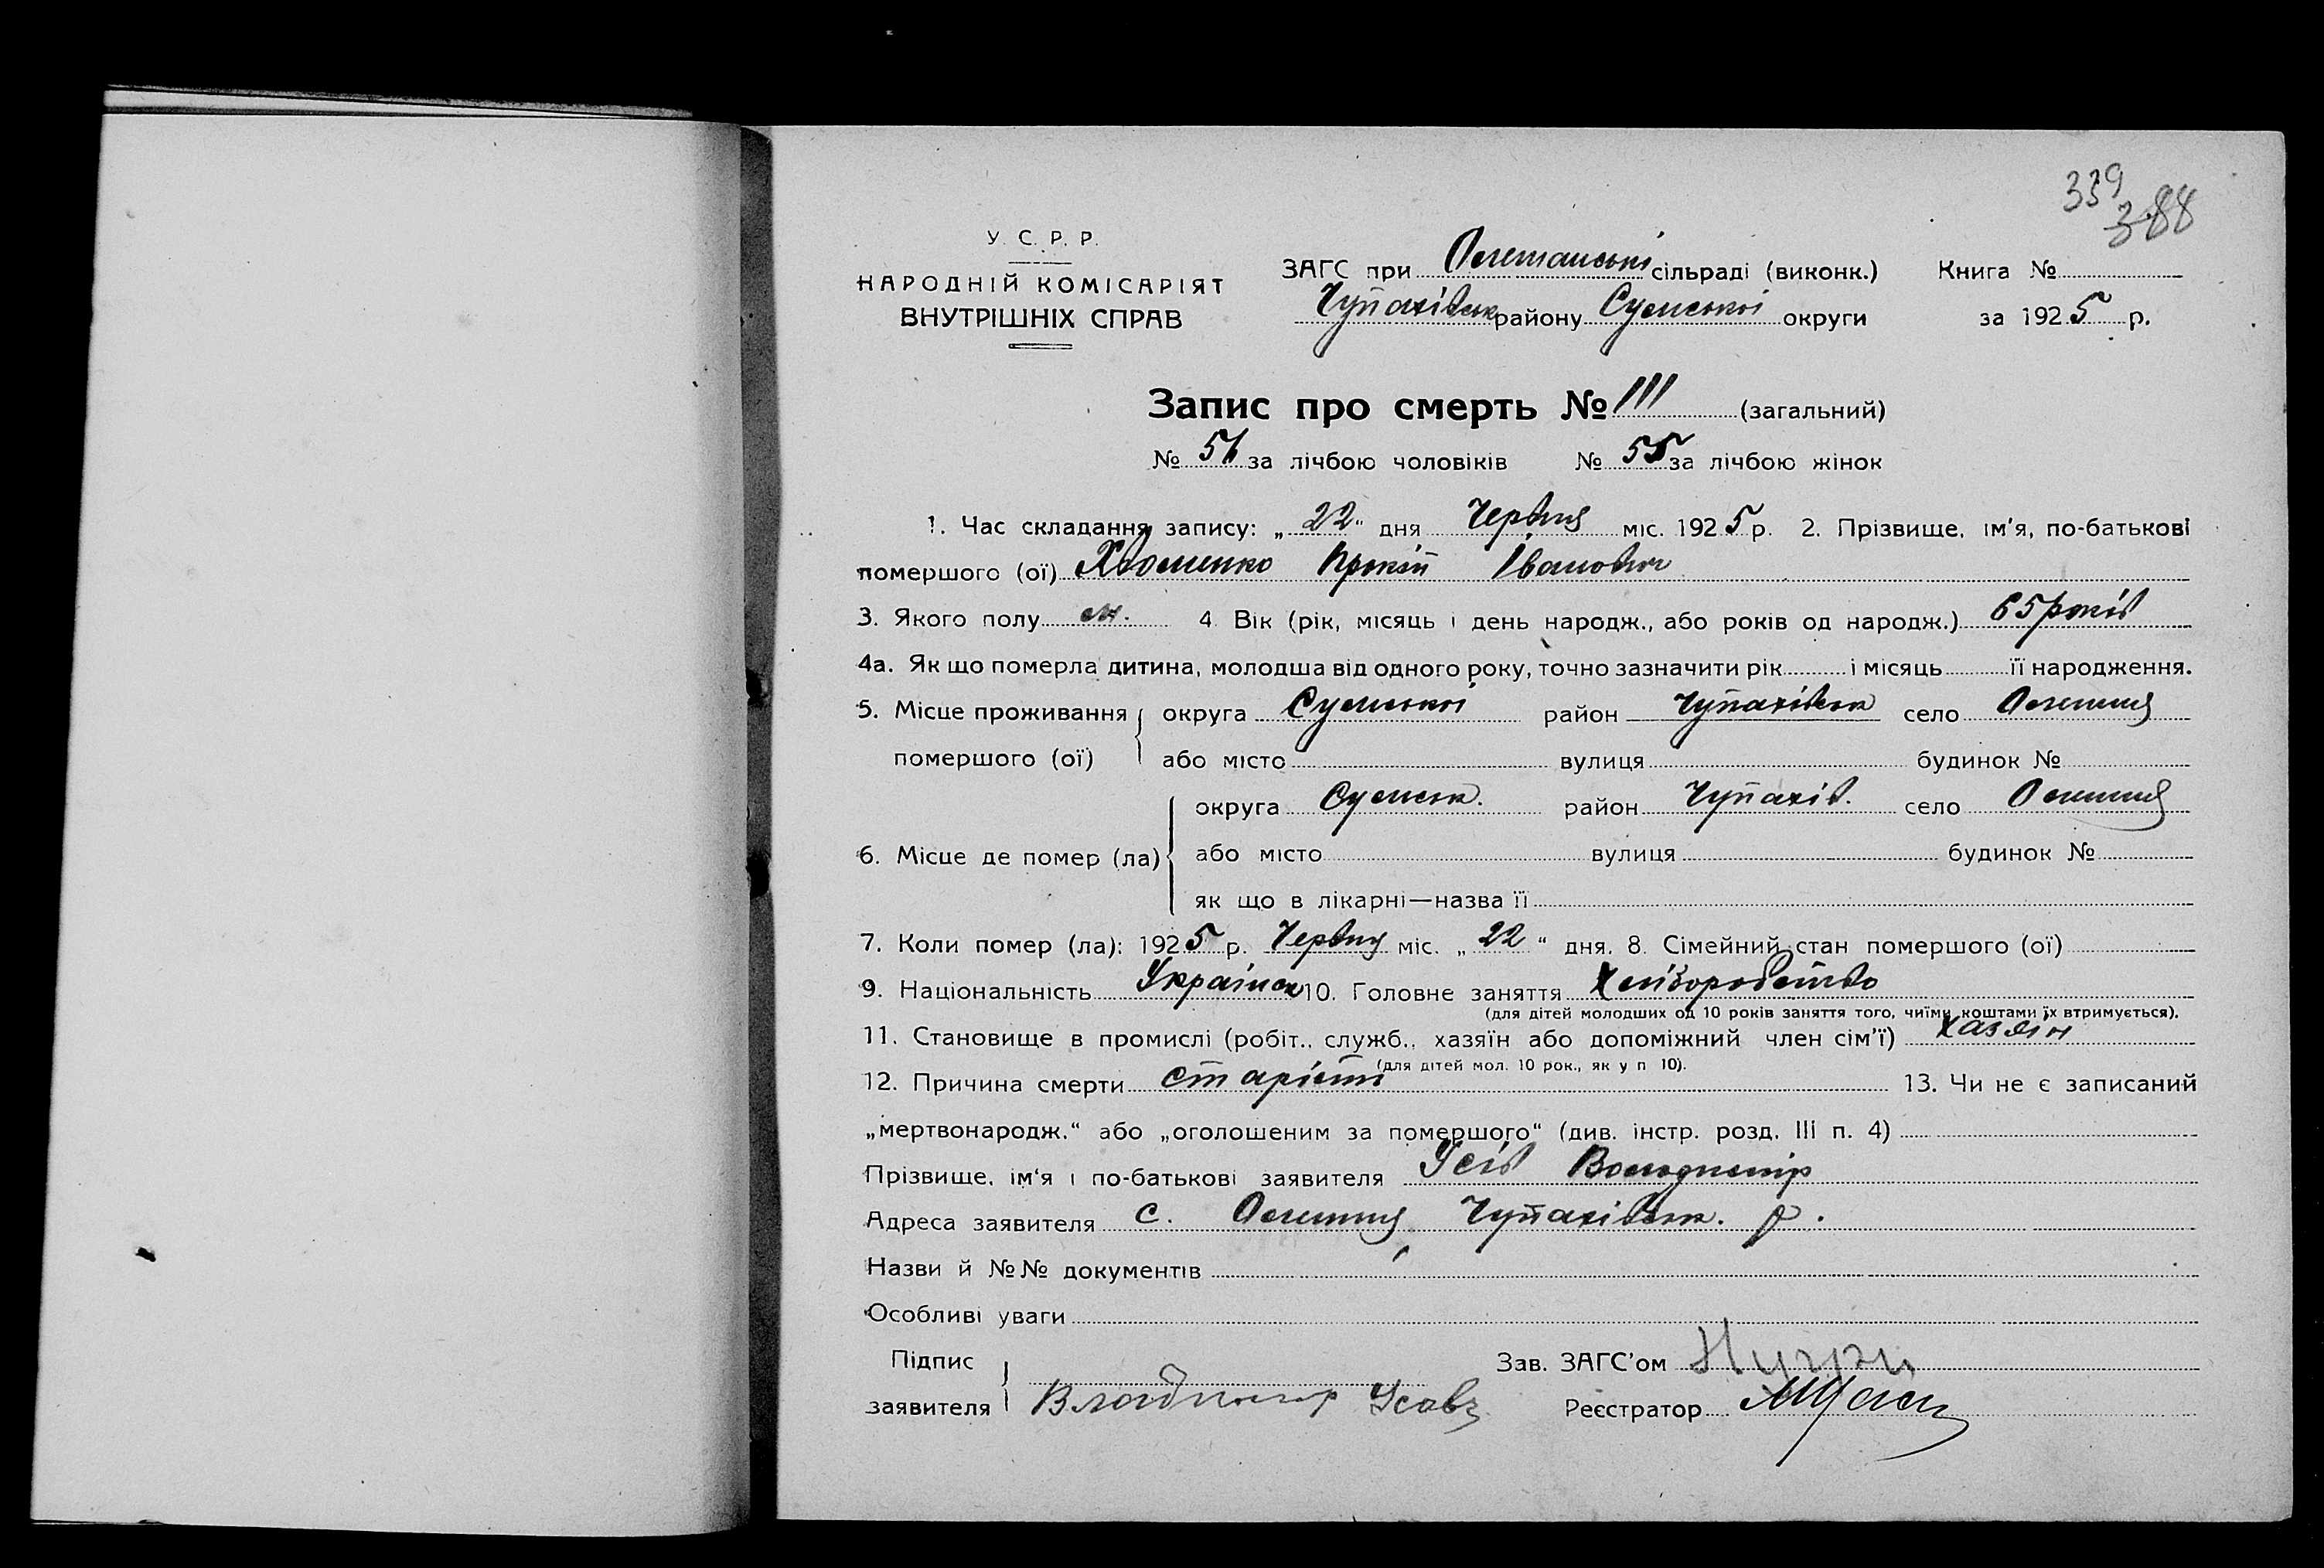 339
388
У. С. Р. Р.
НАРОДНІЙ КОМІСАРІЯТ
ВНУТРІШНІХ СПРАВ
ЗАГС при сільраді (виконк.) Книга №
Чупахівськ району Сумської округи за 1925 р.
Запис про смерть № 111 (загальний)
№ 56 за лічбою чоловіків № 55 за лічбою жінок
1. Час складання запису: „22“ дня Червня міс. 1925 р. 2. Прізвище, ім'я, по-батькові
помершого (ої) Хвоменко Прокіп Іванович
3. Якого полу м. 4. Вік (рік, місяць і день народж., або років од народж.) 65 років
4а. Як що померла дитина, молодша від одного року, точно зазначити рік і місяць її народження.
5. Місце проживання округа Сумської район Чупахівськ село Олешня
помершого (ої) або місто вулиця будинок №
округа Сумськ. район Чупахів. село Олешня
6. Місце де помер (ла) або місто вулиця будинок №
як що в лікарні—назва її
7. Коли помер (ла): 1925 р. Червня міс. „22“ дня. 8. Сімейний стан помершого (ої)
9. Національність Українец 10. Головне заняття Хліборобство
(для дітей молодших од 10 років заняття того, чиїми коштами їх втримується).
11. Становище в промислі (робіт., служб., хазяїн або допоміжний член сім'ї) хазяін
(для дітей мол. 10 рок., як у п 10).
12. Причина смерти старість 13. Чи не є записаний
„мертвонародж.“ або „оголошеним за помершого“ (див. інстр. розд. III п. 4)
Прізвище, ім'я і по-батькові заявителя Усів Володимір
Адреса заявителя с. Олешня Чупахівськ. р.
Назви й №№ документів
Особливі уваги
Підпис Зав. ЗАГС'ом
заявителя Владимир Усовъ Реєстратор